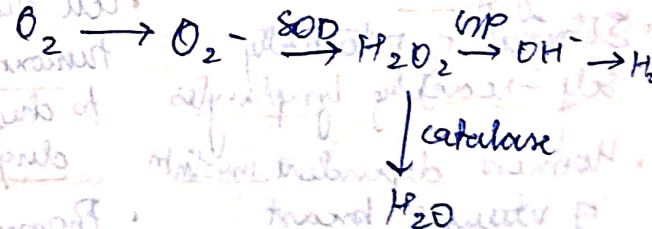 O₂ → O₂⁻ SOD → H₂O₂ GP → OH⁻ → H₂
catalase
H₂O